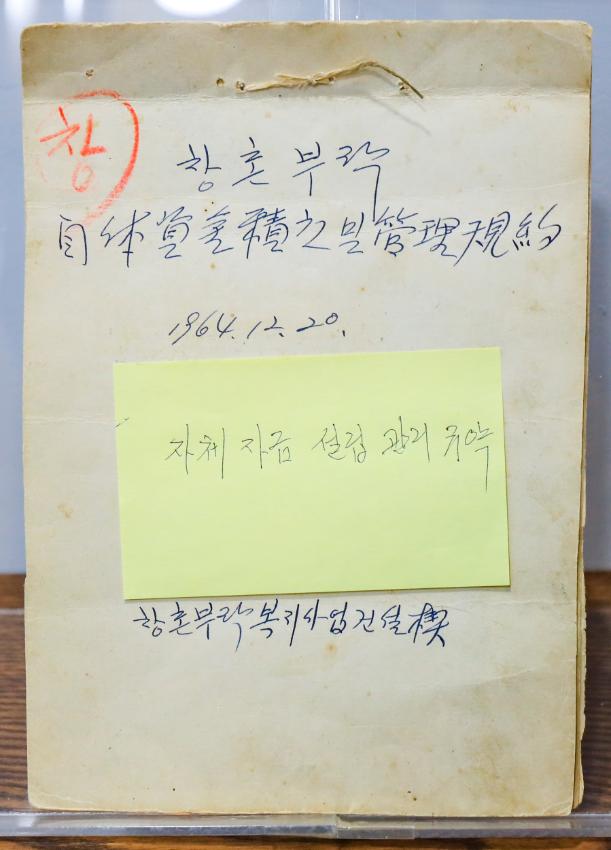 창
창혼부락
自体資金積立및管理規約
1964.12.20.
자체 자금 설립 관리 규약
창혼부락복지사업건설楔